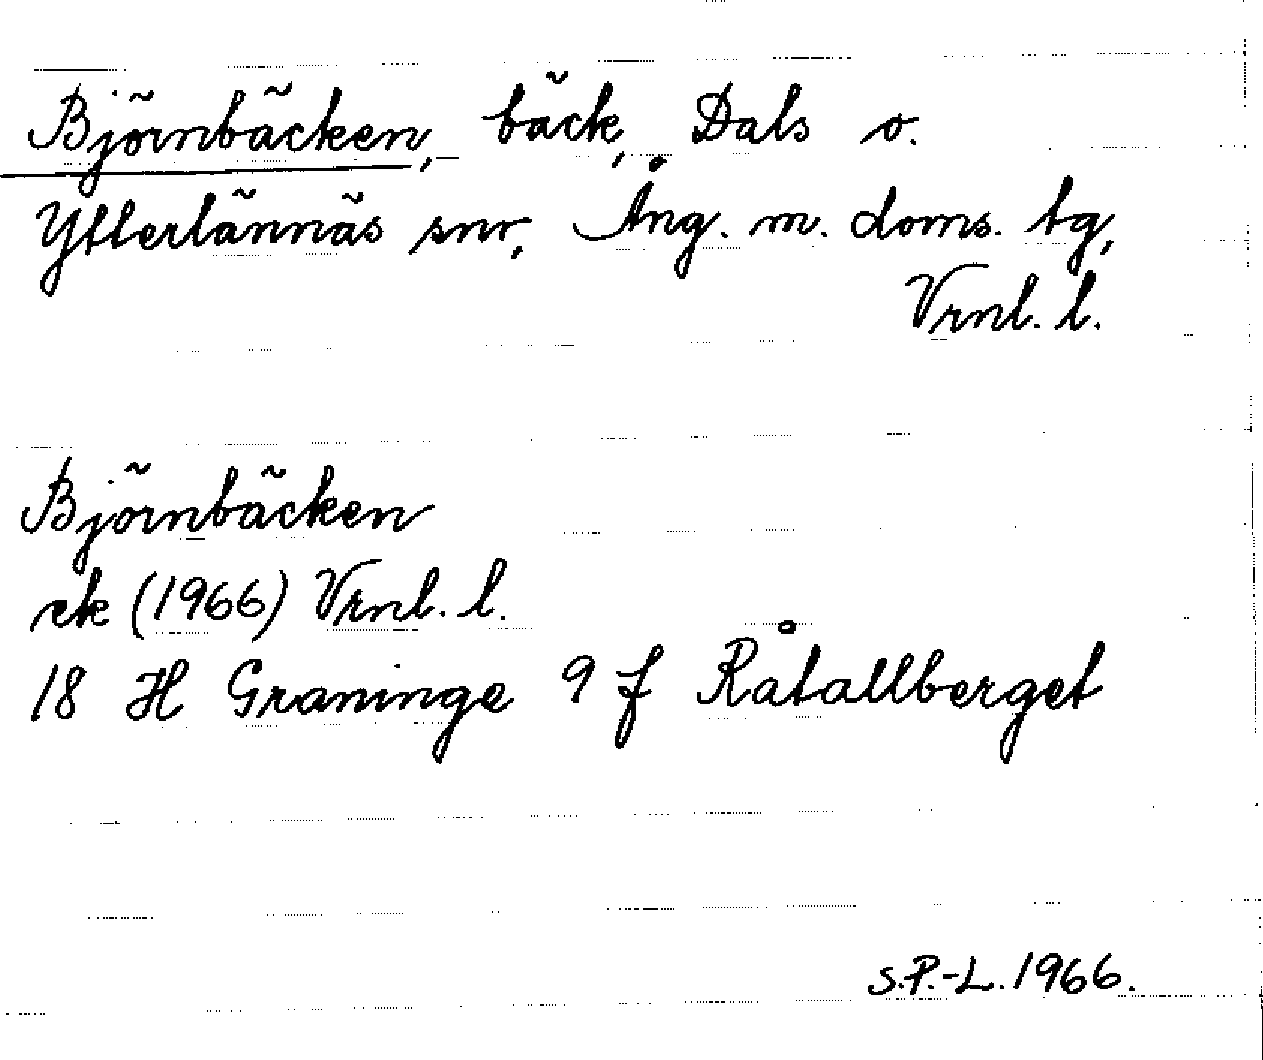 Björnbäcken, bäck, Dals o.
Ytterlännäs snr, Ång. m. doms. tg,
Vrnl. l.
Björnbäcken
rek (1966) Vrnl. l.
18 H Graninge 9 f Råtallberget
S.P.-L. 1966.